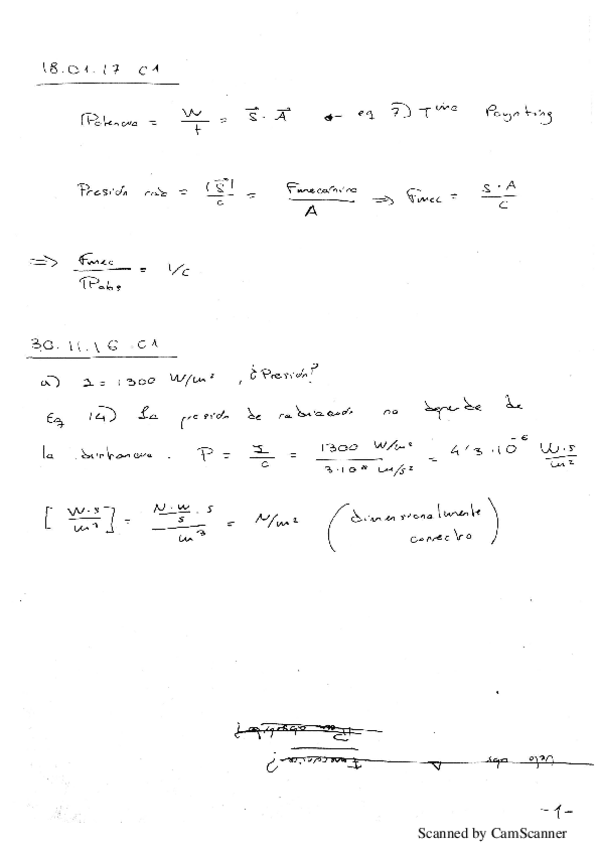 18.01.17 C1
Potencia = W/t = S⃗ · A⃗ ← eq 7) Tma Poynting
Presión rad = |S⃗|/c = Fmecánica/A ⇒ Fmec = S·A/c
⇒ Fmec/Pabs = 1/c
30.11.16 C1
a) I = 1300 W/m² , ¿Presión?
Eq 14) La presión de radiación no depende de
la distancia. P = I/c = 1300 W/m² / 3·10⁸ m/s² = 4'3·10⁻⁶ W·s/m²
[W·s/m³] = N·m/s · s / m³ = N/m² (dimensionalmente
correcto)
-1-
Scanned by CamScanner